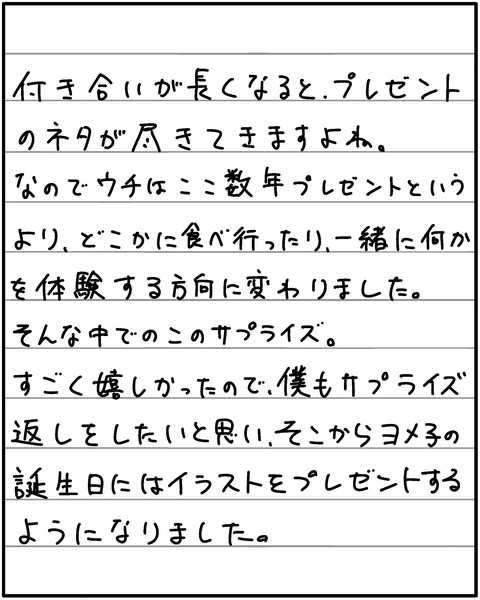 付き合いが長くなると、プレゼント
のネタが尽きてきますよね。
なのでウチはここ数年プレゼントという
より、どこかに食べ行ったり、一緒に何か
を体験する方向に変わりました。
そんな中でのこのサプライズ。
すごく嬉しかったので、僕もサプライズ
返しをしたいと思い、そこからヨメ子の
誕生日にはイラストをプレゼントする
ようになりました。